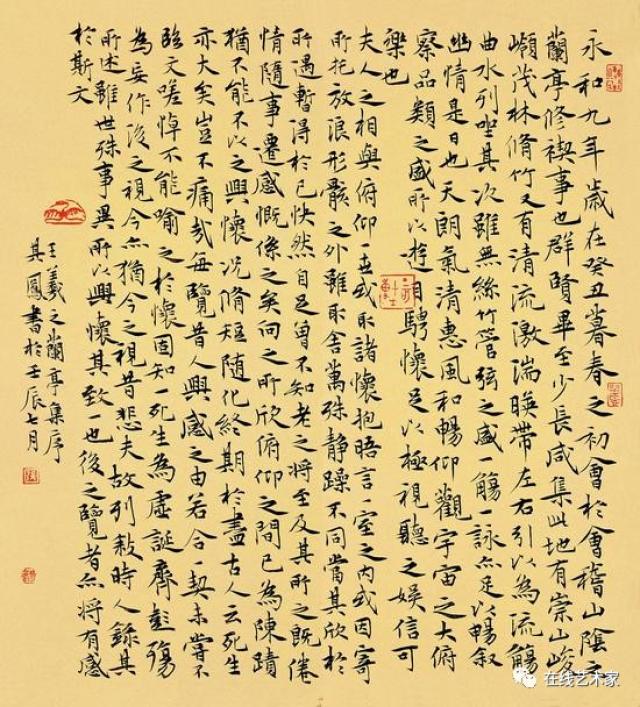 永和九年歲在癸丑暮春之初會於會稽山陰之
蘭亭修禊事也群賢畢至少長咸集此地有崇山峻
嶺茂林脩竹又有清流激湍暎帶左右引以為流觴
曲水列坐其次雖無絲竹管弦之盛一觴一詠亦足以暢敘
幽情是日也天朗氣清惠風和暢仰觀宇宙之大俯
察品類之盛所以遊目騁懷足以極視聽之娛信可
樂也
夫人之相與俯仰一世或取諸懷抱晤言一室之内或因寄
所托放浪形骸之外雖取舍萬殊静躁不同當其欣於
所遇暫得於己快然自足曾不知老之將至及其所之既倦
情隨事遷感慨係之矣向之所欣俯仰之間已為陳蹟
猶不能不以之興懷況脩短隨化終期於盡古人云死生
亦大矣豈不痛哉每覽昔人興感之由若合一契未嘗不
臨文嗟悼不能喻之於懷固知一死生為虛誕齊彭殤
為妄作後之視今亦猶今之視昔悲夫故列敘時人錄其
所述雖世殊事異所以興懷其致一也後之覽者亦將有感
於斯文
王羲之蘭亭集序
其鳳書於壬辰七月
在线艺术家